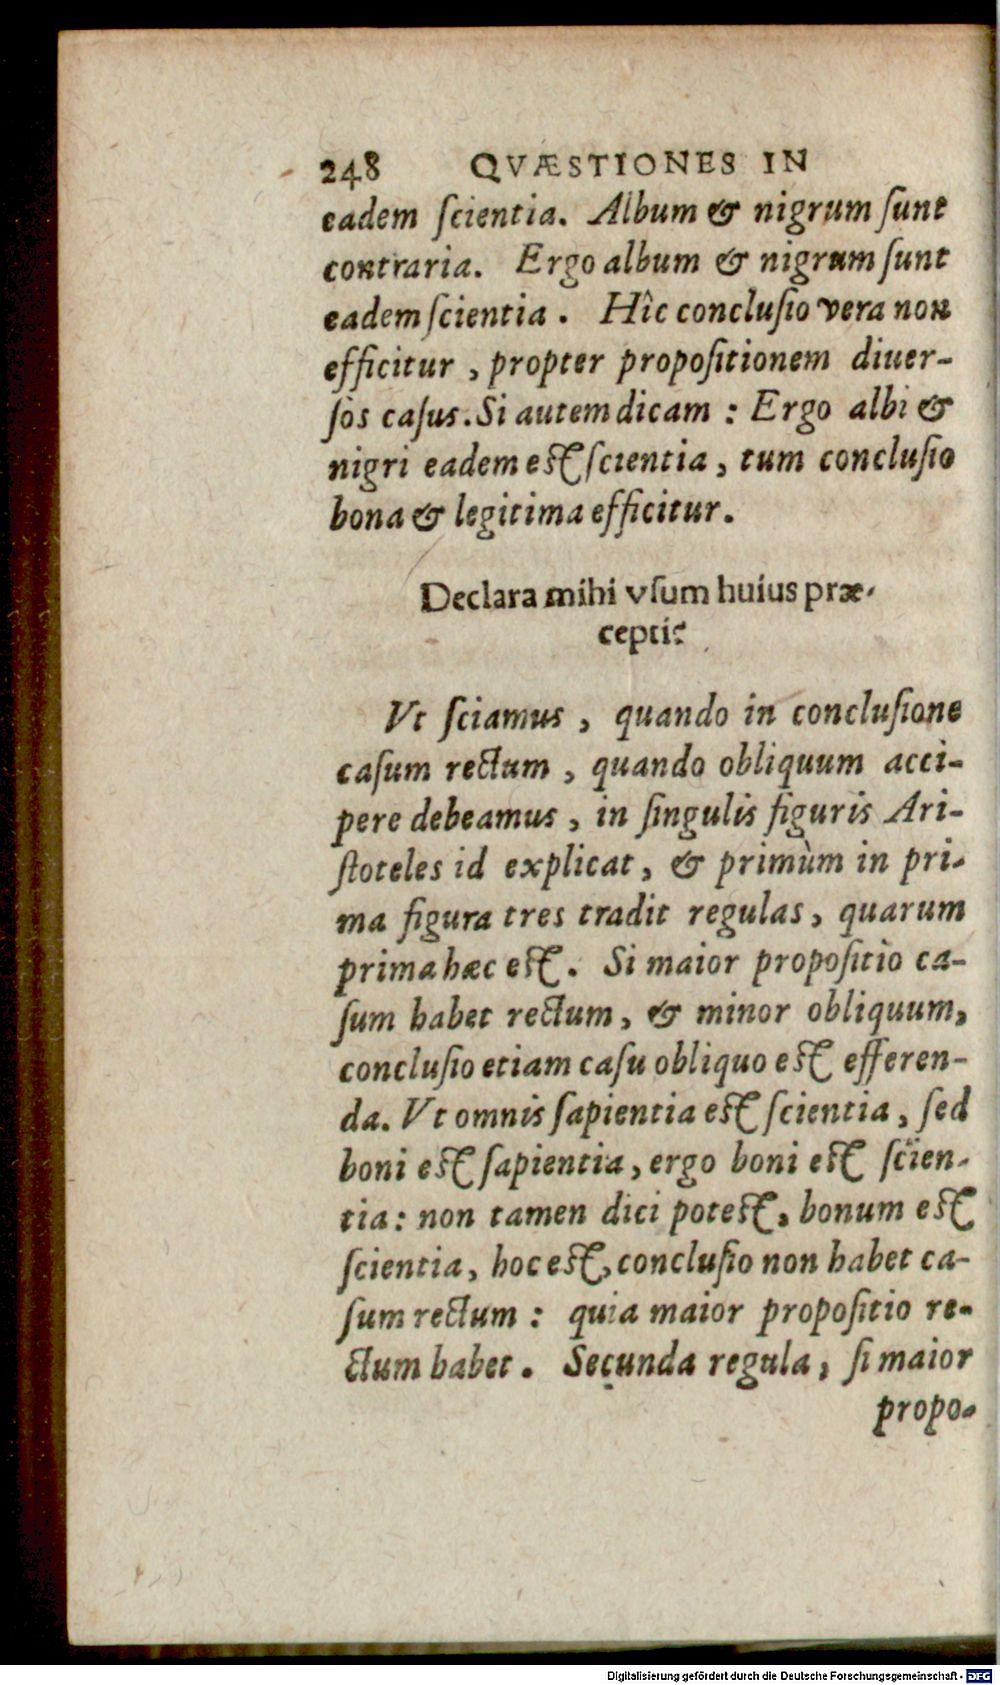 248 QVÆSTIONES IN
eadem ſcientia. Album & nigrum ſunt
contraria. Ergo album & nigrum ſunt
eadem ſcientia. Hîc concluſio vera non
efficitur, propter propoſitionem diuer-
ſos caſus. Si autem dicam: Ergo albi &
nigri eadem eſt ſcientia, tum concluſio
bona & legitima efficitur.
Declara mihi vſum huius præ-
cepti?
Vt ſciamus, quando in concluſione
caſum rectum, quando obliquum acci-
pere debeamus, in ſingulis figuris Ari-
ſtoteles id explicat, & primùm in pri-
ma figura tres tradit regulas, quarum
prima hæc eſt. Si maior propoſitio ca-
ſum habet rectum, & minor obliquum,
concluſio etiam caſu obliquo eſt efferen-
da. Vt omnis ſapientia eſt ſcientia, ſed
boni eſt ſapientia, ergo boni eſt ſcien-
tia: non tamen dici poteſt, bonum eſt
ſcientia, hoc eſt, concluſio non habet ca-
ſum rectum: quia maior propoſitio re-
ctum habet. Secunda regula, ſi maior
propo-
Digitalisierung gefördert durch die Deutsche Forschungsgemeinschaft - DFG